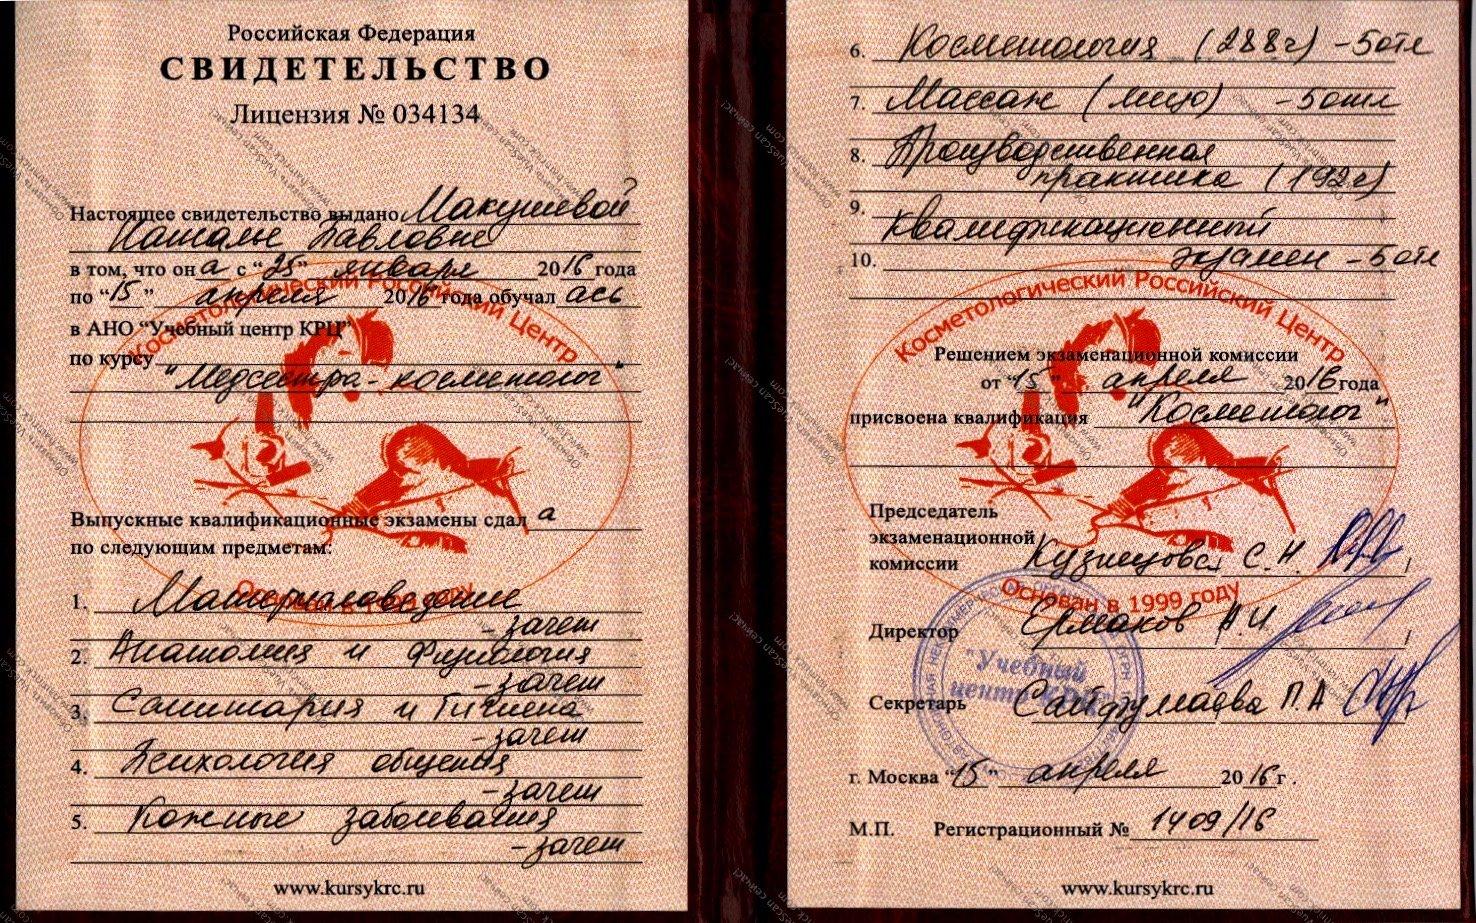 Российская Федерация
СВИДЕТЕЛЬСТВО
Лицензия № 034134
Настоящее свидетельство выдано Макушевой
Наталье Павловне
в том, что он а с “25” января 2016 года
по “15” апреля 2016 года обучал ась
в АНО “Учебный центр КРЦ”
по курсу
"Медсестра-косметолог"
Косметологический Российский Центр
Основан в 1999 году
Выпускные квалификационные экзамены сдал а
по следующим предметам:
1. Материаловедение
- зачет
2. Анатомия и физиология
- зачет
3. Санитария и Гигиена
- зачет
4. Психология общения
- зачет
5. Кожные заболевания
- зачет
www.kursykrc.ru
6. Косметология (288ч) - 5 отл
7. Массаж (лица) - 5 отл
8. Производственная
практика (192ч)
9. Квалификационный
10. экзамен - 5 отл
Косметологический Российский Центр
Решением экзаменационной комиссии
от “15” апреля 2016 года
присвоена квалификация "Косметолог"
Председатель
экзаменационной
комиссии Кузнецова С. Н.
Основан в 1999 году
Директор Ермаков А.И
"Учебный
центр КРЦ"
Секретарь Сайфулаева П.А
г. Москва “15” апреля 2016 г.
М.П. Регистрационный № 1409/16
www.kursykrc.ru